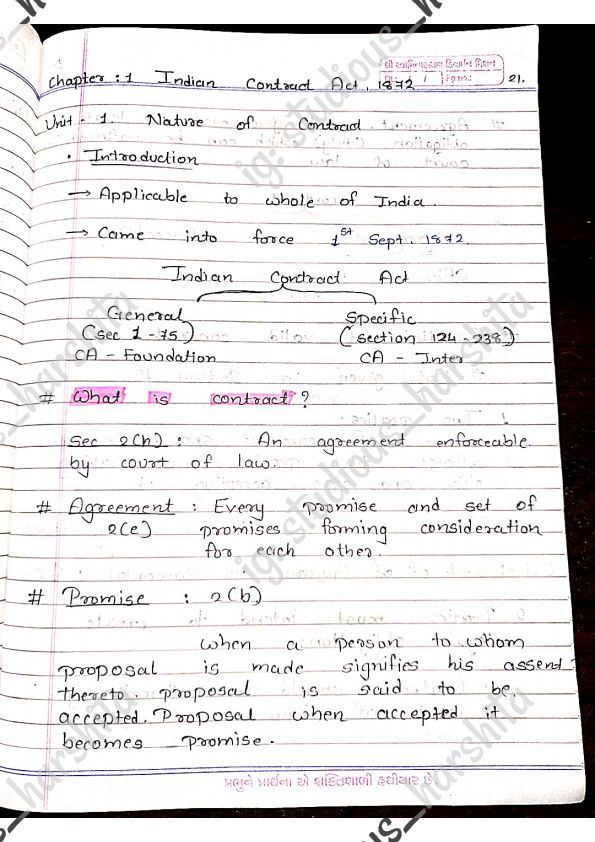 શ્રી સ્વામિનારાયણ ડિવાઈન મિશન
Chapter : 1 Indian Contract Act, 1872
1
21.
Unit - 1 Nature of Contract
• Introduction
→ Applicable to whole of India.
→ Came into force 1st Sept. 1872.
Indian Contract Act
General Specific
(Sec 1 - 75) (section 124 - 238)
CA - Foundation CA - Inter
# What is contract ?
Sec 2(h) : An agreement enforceable
by court of law.
# Agreement : Every promise and set of
2(e) promises forming consideration
for each other.
# Promise : 2(b)
when a person to whom
proposal is made signifies his assend
thereto. proposal is said to be
accepted. Proposal when accepted it
becomes promise.
પ્રભુને પ્રાર્થના એ શક્તિશાળી હથીયાર છે.
ig: studious_harshita
ig: studious_harshita